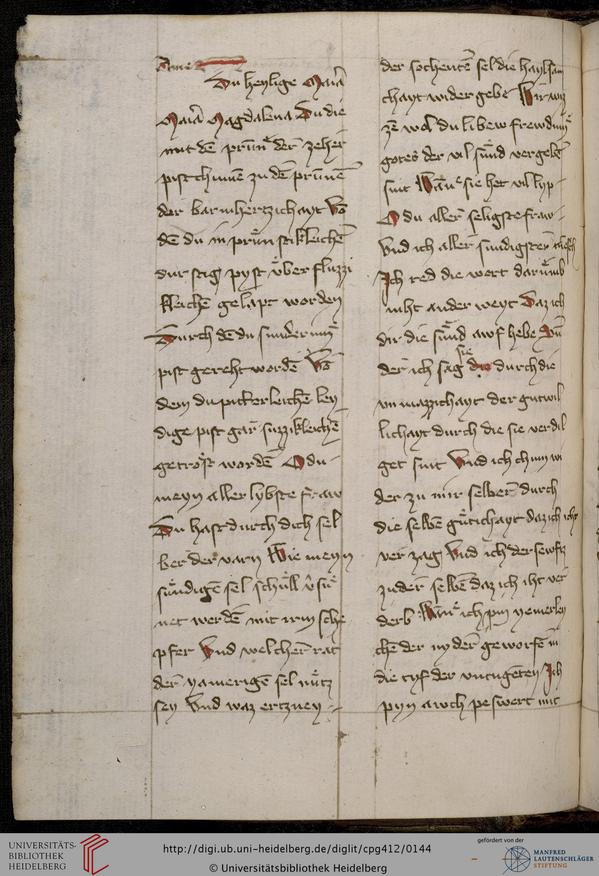 Ame
Du heylige Maria
Maria Magdalena Du die
mit dē prūn der zeher
pist chumen zu dē prunnē
der barmhertzichayt Vō
dē du in prün stikleichē
dur stig pyst über fluzzi
kleichē gelapt worden
Durch dē du sunderinn
pist gereht wordē Vō
dem du pitterleichē ley
dige pist gar suzzikleichē
getröst wordē O du
meyn aller lybste fraw
Du hast durch dich sel
ber der varn Wie meyn
sundigen sel schull v̄sü
net werdē mit irm sche
pfer Vnd welcher rat
der yamerigē sel nütz
sey Vnd waz ertzney
der sochentē sel die haylsam
chayt wider gebe Wir wiz
zē wol du libew frewdinn
gotes der vil sund vergebē
sint Wan sie het vil lyp
O du aller seligste fraw
Vnd ich aller sundigster
Ich red die wort darumb
niht ander weyt Daz ich
dir die sund awf hebe Sun
der ich sag sie durch die
vnmazzichayt der gutwil
lichayt durch die sie vertil
get sint Vnd ich chum wi
der zu mir selber durch
die selbē gütichayt daz ich iht
ver zag Vnd ich der sewftz
zu der selbē daz ich iht ver
derb Wan ich pin yemerlei
chē der nyder geworfē in
die tyf der vntugētē Ich
pyn awch peswert mit
UNIVERSITÄTS-
BIBLIOTHEK
HEIDELBERG
http://digi.ub.uni-heidelberg.de/diglit/cpg412/0144
© Universitätsbibliothek Heidelberg
gefördert von der
MANFRED
LAUTENSCHLÄGER
STIFTUNG